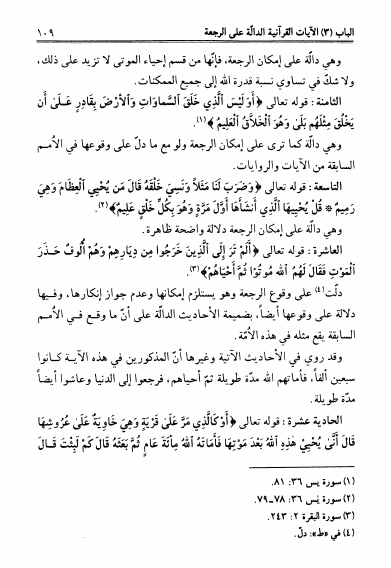 الباب (٣) الآيات القرآنية الدالّة على الرجعة ١٠٩
وهي دالّة على إمكان الرجعة، فإنّها من قسم إحياء الموتى لا تزيد على ذلك،
ولا شكّ في تساوي نسبة قدرة الله إلى جميع الممكنات.
الثامنة: قوله تعالى ﴿أَوَلَيْسَ ٱلَّذِي خَلَقَ ٱلسَّماوَاتِ وَٱلْأَرْضَ بِقَادِرٍ عَلَىٰ أَن
يَخْلُقَ مِثْلَهُم بَلَىٰ وَهُوَ ٱلْخَلَّاقُ ٱلْعَلِيمُ﴾(١).
وهي دالّة كما ترى على إمكان الرجعة ولو مع ما دلّ على وقوعها في الأُمم
السابقة من الآيات والروايات.
التاسعة: قوله تعالى ﴿وَضَرَبَ لَنَا مَثَلاً وَنَسِيَ خَلْقَهُ قَالَ مَن يُحْيِي ٱلْعِظَامَ وَهِيَ
رَمِيمٌ * قُلْ يُحْيِيهَا ٱلَّذِي أَنشَأَهَا أَوَّلَ مَرَّةٍ وَهُوَ بِكُلِّ خَلْقٍ عَلِيمٌ﴾(٢).
وهي دالّة على إمكان الرجعة دلالة واضحة ظاهرة.
العاشرة: قوله تعالى ﴿أَلَمْ تَرَ إِلَى ٱلَّذِينَ خَرَجُوا مِن دِيَارِهِمْ وَهُمْ أُلُوفٌ حَذَرَ
ٱلْمَوْتِ فَقَالَ لَهُمُ ٱلله مُوتُوا ثُمَّ أَحْيَاهُمْ﴾(٣).
دلّت(٤) على وقوع الرجعة وهو يستلزم إمكانها وعدم جواز إنكارها، وفيها
دلالة على وقوعها أيضاً، بضميمة الأحاديث الدالّة على أنّ ما وقع في الأُمم
السابقة يقع مثله في هذه الأُمّة.
وقد روي في الأحاديث الآتية وغيرها أنّ المذكورين في هذه الآية كانوا
سبعين ألفاً، فأماتهم الله مدّة طويلة ثمّ أحياهم، فرجعوا إلى الدنيا وعاشوا أيضاً
مدّة طويلة.
الحادية عشرة: قوله تعالى ﴿أَوْ كَٱلَّذِي مَرَّ عَلَىٰ قَرْيَةٍ وَهِيَ خَاوِيَةٌ عَلَىٰ عُرُوشِهَا
قَالَ أَنَّىٰ يُحْيِيْ هَٰذِهِ ٱللهُ بَعْدَ مَوْتِهَا فَأَمَاتَهُ ٱللهُ مِأْئَةَ عَامٍ ثُمَّ بَعَثَهُ قَالَ كَمْ لَبِثْتَ قَالَ
(١) سورة يس ٣٦: ٨١.
(٢) سورة يس ٣٦: ٧٨ـ٧٩.
(٣) سورة البقرة ٢: ٢٤٣.
(٤) في «ط»: دلّ.